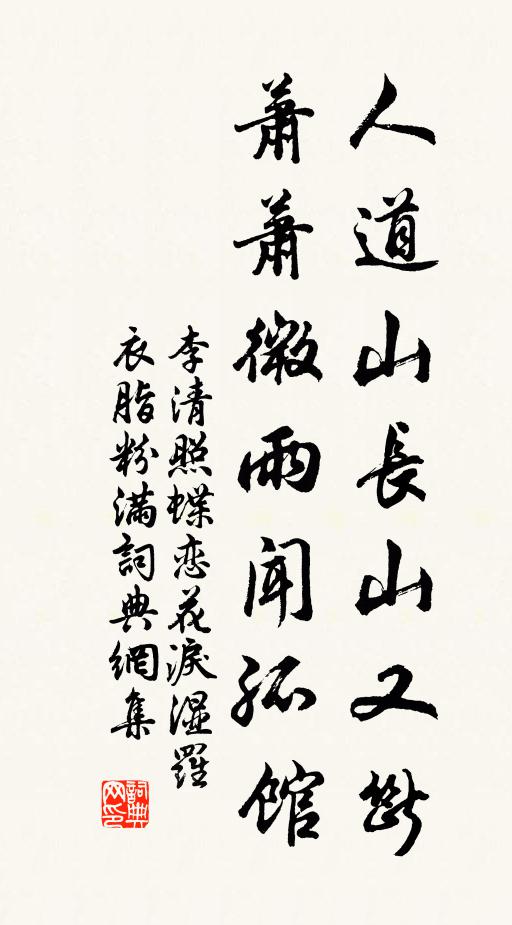 人道山長山又斷
蕭蕭微雨聞孤館
李清照蝶恋花淚湿羅
衣脂粉滿詞典網集
詞典網印